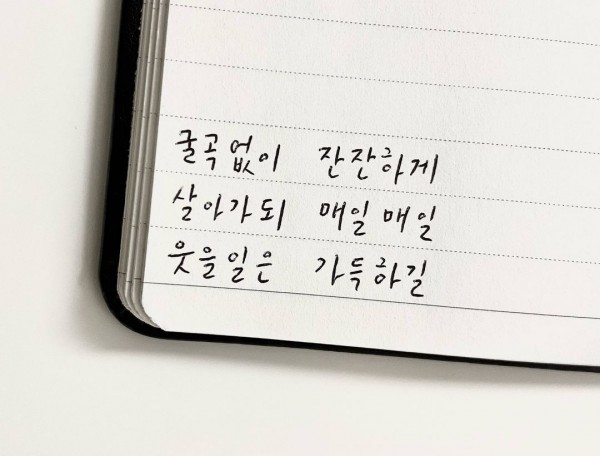 굴곡없이 잔잔하게
살아가되 매일 매일
웃을일은 가득하길